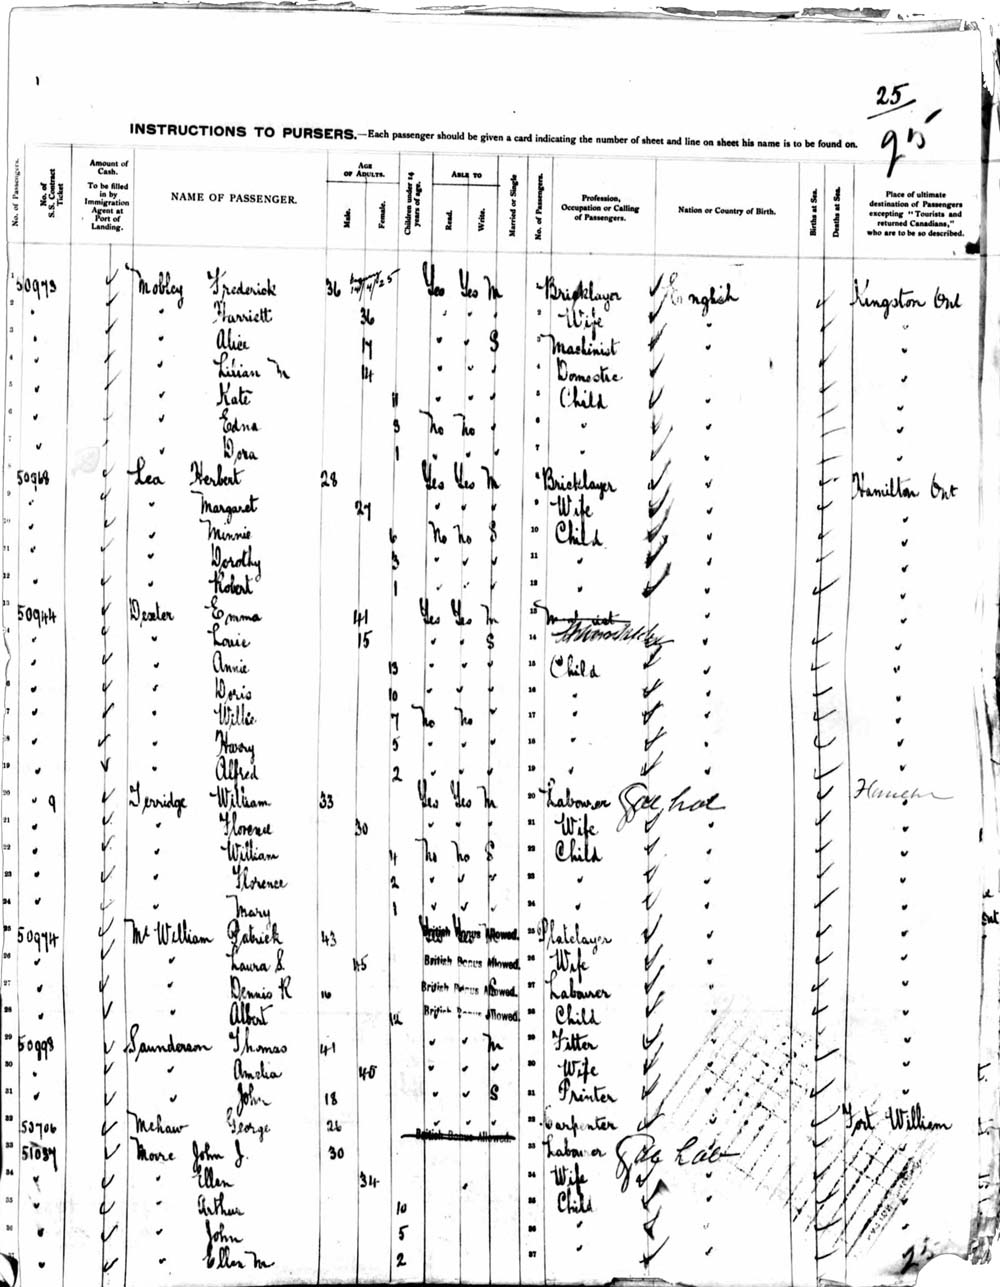 25
95
INSTRUCTIONS TO PURSERS.—Each passenger should be given a card indicating the number of sheet and line on sheet his name is to be found on.
No. of Passengers. No. of S.S. Contract Ticket Amount of Cash. To be filled in by Immigration Agent at Port of Landing. NAME OF PASSENGER. AGE OF ADULTS. Male. Female. Children under 14 years of age. ABLE TO Read. Write. Married or Single No. of Passengers. Profession, Occupation or Calling of Passengers. Nation or Country of Birth. Births at Sea. Deaths at Sea. Place of ultimate destination of Passengers excepting "Tourists and returned Canadians," who are to be so described.
1 50973 Mobley Frederick 36 Yes Yes M Bricklayer English Kingston Ont
2 " " Harriett 36 " " " 2 Wife " "
3 " " Alice 17 " " S 3 Machinist " "
4 " " Lilian M 14 " " " 4 Domestic " "
5 " " Kate 11 " " " 5 Child " "
6 " " Edna 3 No No " 6 " " "
7 " " Dora 1 " " " 7 " " "
50968 Lea Herbert 28 Yes Yes M 8 Bricklayer " Hamilton Ont
9 " " Margaret 27 " " " 9 Wife " "
10 " " Minnie 6 No No S 10 Child " "
11 " " Dorothy 3 " " " 11 " " "
12 " " Robert 1 " " " 12 " " "
13 50944 Dexter Emma 41 Yes Yes M 13 Machinist " "
14 " " Louie 15 " " S 14 " "
15 " " Annie 13 " " " 15 Child " "
16 " " Doris 10 " " " 16 " " "
17 " " Willie 7 No No " 17 " " "
18 " " Harry 5 " " " 18 " " "
19 " " Alfred 2 " " " 19 " " "
20 " 9 Terridge William 33 Yes Yes M 20 Labourer
21 " " Florence 30 " " " 21 Wife " "
22 " " William 4 No No S 22 Child " "
23 " " Florence 2 " " " 23 " " "
24 " " Mary 1 " " " 24 " " "
25 50974 McWilliam Patrick 43 British Bonus Allowed. 25 Platelayer " "
26 " " Laura S. 45 British Bonus Allowed. 26 Wife " "
27 " " Dennis R 16 British Bonus Allowed. 27 Labourer " "
28 " " Albert 12 British Bonus Allowed. 28 Child " "
29 50998 Saunderson Thomas 41 " " M 29 Fitter " "
30 " " Amelia 40 " " " 30 Wife " "
31 " " John 18 " " S 31 Printer " "
32 50706 Mchaw George 26 " " " 32 Carpenter " Fort William
33 51037 British Bonus Allowed.
Moore John J. 30 33 Labourer
34 " " Ellen 34 " 34 Wife " "
35 " " Arthur 10 35 Child " "
36 " " John 5 36 " " "
" " Ellen M 2 37 " " "